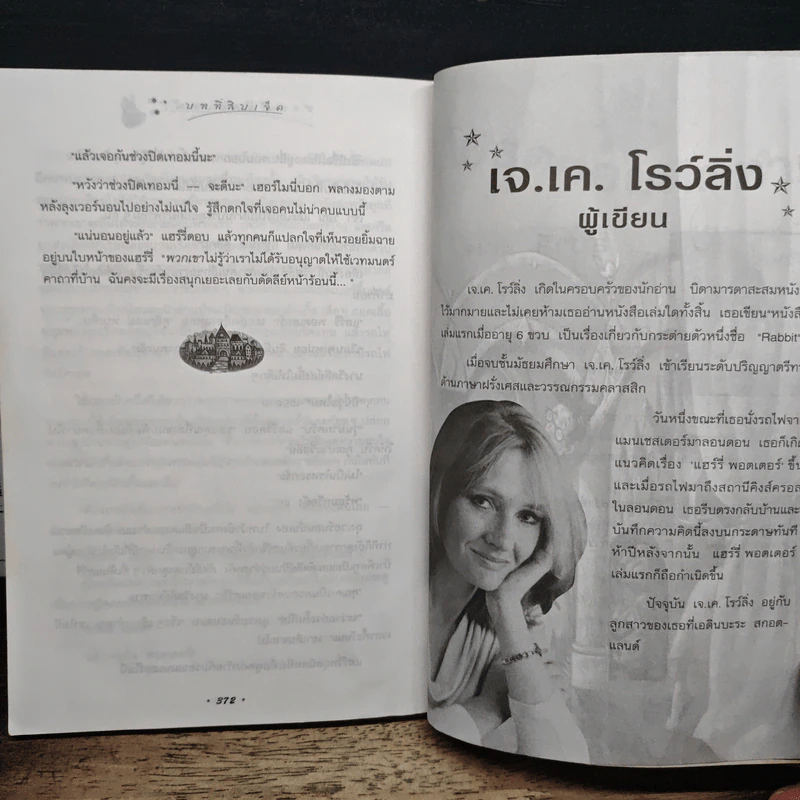 บทที่สิบเจ็ด
"แล้วเจอกันช่วงปิดเทอมนี้นะ"
"หวังว่าช่วงปิดเทอมนี่ –– จะดีนะ" เฮอร์ไมนี่บอก พลางมองตาม
หลังลุงเวอร์นอนไปอย่างไม่แน่ใจ รู้สึกตกใจที่เจอคนไม่น่าคบแบบนี้
"แน่นอนอยู่แล้ว" แฮร์รี่ตอบ แล้วทุกคนก็แปลกใจที่เห็นรอยยิ้มฉาย
อยู่บนใบหน้าของแฮร์รี่ "พวกเขาไม่รู้ว่าเราไม่ได้รับอนุญาตให้ใช้เวทมนตร์
คาถาที่บ้าน ฉันคงจะมีเรื่องสนุกเยอะเลยกับดัดลีย์หน้าร้อนนี้... "
• 372 •
เจ.เค. โรว์ลิ่ง
ผู้เขียน
เจ.เค. โรว์ลิ่ง เกิดในครอบครัวของนักอ่าน บิดามารดาสะสมหนัง
ไว้มากมายและไม่เคยห้ามเธออ่านหนังสือเล่มใดทั้งสิ้น เธอเขียน"หนังสื
เล่มแรกเมื่ออายุ 6 ขวบ เป็นเรื่องเกี่ยวกับกระต่ายตัวหนึ่งชื่อ "Rabbit"
เมื่อจบชั้นมัธยมศึกษา เจ.เค. โรว์ลิ่ง เข้าเรียนระดับปริญญาตรีทา
ด้านภาษาฝรั่งเศสและวรรณกรรมคลาสสิก
วันหนึ่งขณะที่เธอนั่งรถไฟจา
แมนเชสเตอร์มาลอนดอน เธอก็เกิด
แนวคิดเรื่อง 'แฮร์รี่ พอตเตอร์' ขึ้น
และเมื่อรถไฟมาถึงสถานีคิงส์ครอส
ในลอนดอน เธอรีบตรงกลับบ้านและ
บันทึกความคิดนี้ลงบนกระดาษทันที
ห้าปีหลังจากนั้น แฮร์รี่ พอตเตอร์
เล่มแรกก็ถือกำเนิดขึ้น
ปัจจุบัน เจ.เค. โรว์ลิ่ง อยู่กับ
ลูกสาวของเธอที่เอดินบะระ สกอต-
แลนด์